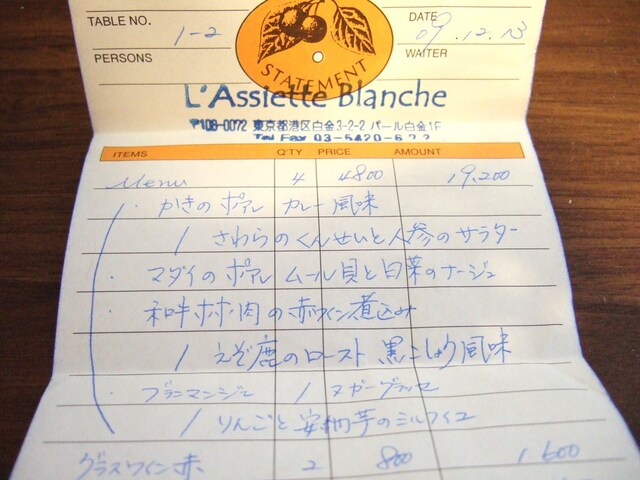 TABLE NO. 1-2
DATE 09.12.13
PERSONS
WAITER
STATEMENT
L'Assiette Blanche
〒108-0072 東京都港区白金3-2-2 パール白金1F
Tel Fax 03-5420-6
ITEMS Q'TY PRICE AMOUNT
Menu 4 4800 19,200
・かきのポアレ カレー風味
/ さわらのくんせいと人参のサラダ
・マダイのポアレ ムール貝と白菜のナージュ
・和牛ホホ肉の赤ワイン煮込み
/ えぞ鹿のロースト 黒こしょう風味
・ブランマンジェ / ヌガーグラッセ
/ りんごと安納芋のミルフィユ
グラスワイン赤 2 800 1600